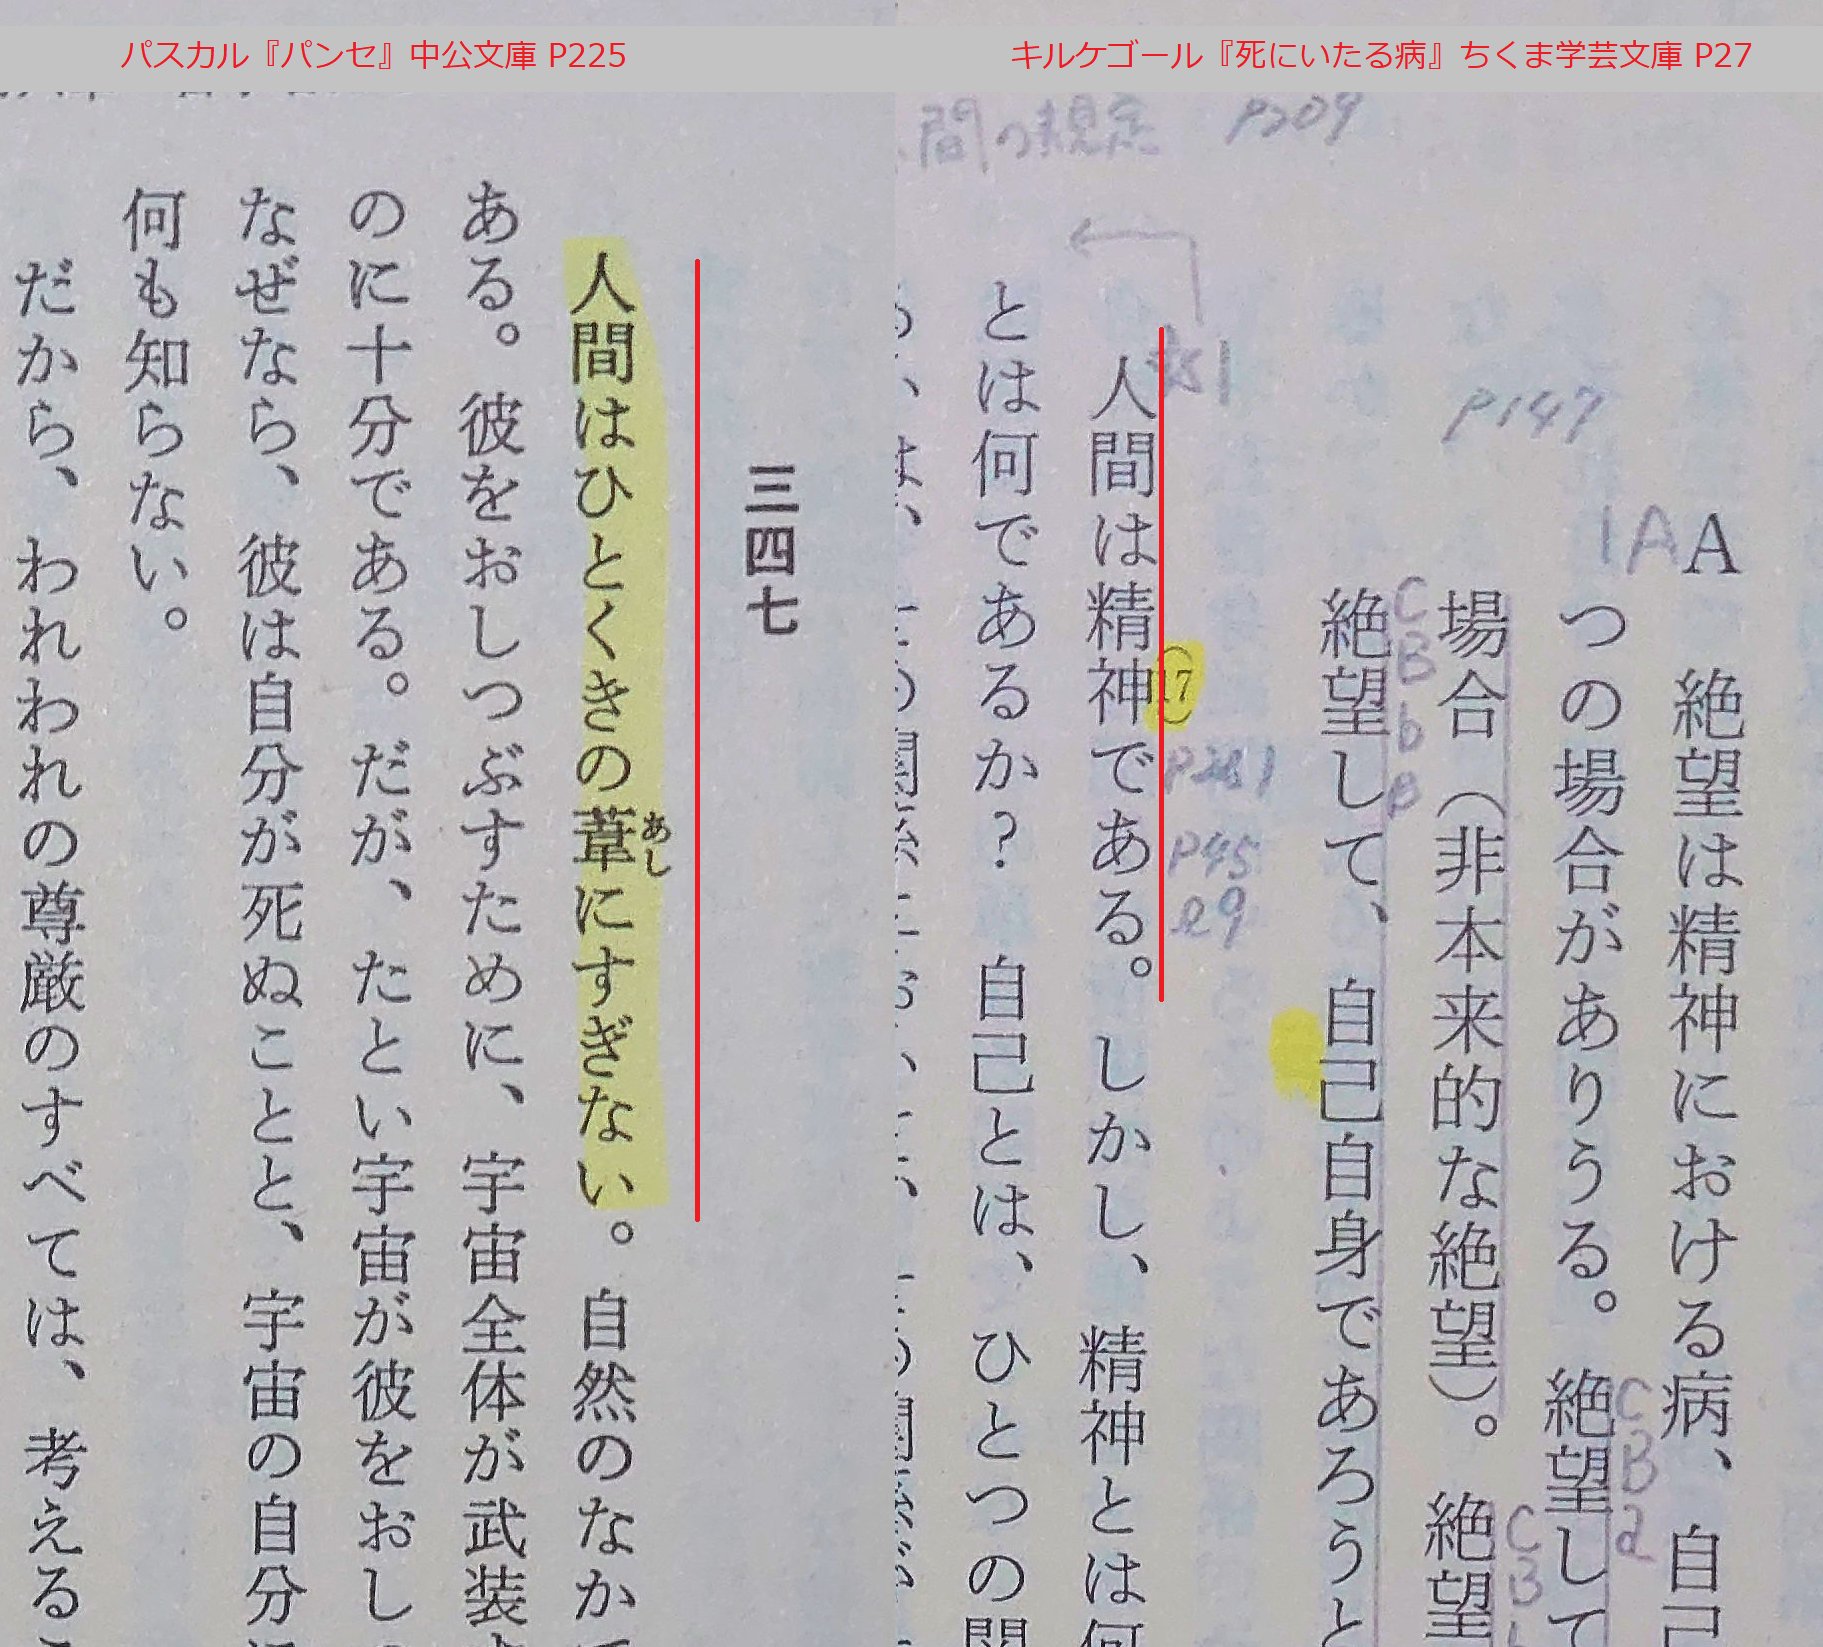 パスカル『パンセ』中公文庫 P225
三四七
人間はひとくきの葦にすぎない。自然のなか
あし
ある。彼をおしつぶすために、宇宙全体が武装
のに十分である。だが、たとい宇宙が彼をおし
なぜなら、彼は自分が死ぬことと、宇宙の自分
何も知らない。
だから、われわれの尊厳のすべては、考える
キルケゴール『死にいたる病』ちくま学芸文庫 P27
間の規定 P209
P147
1A
A 絶望は精神における病、自己
つの場合がありうる。絶望して
C B a
場合（非本来的な絶望）。絶望
C B
絶望して、自己自身であろうと
C B b β
人間は精神である。しかし、精神とは何
17
P45
ℓ9
とは何であるか？ 自己とは、ひとつの関